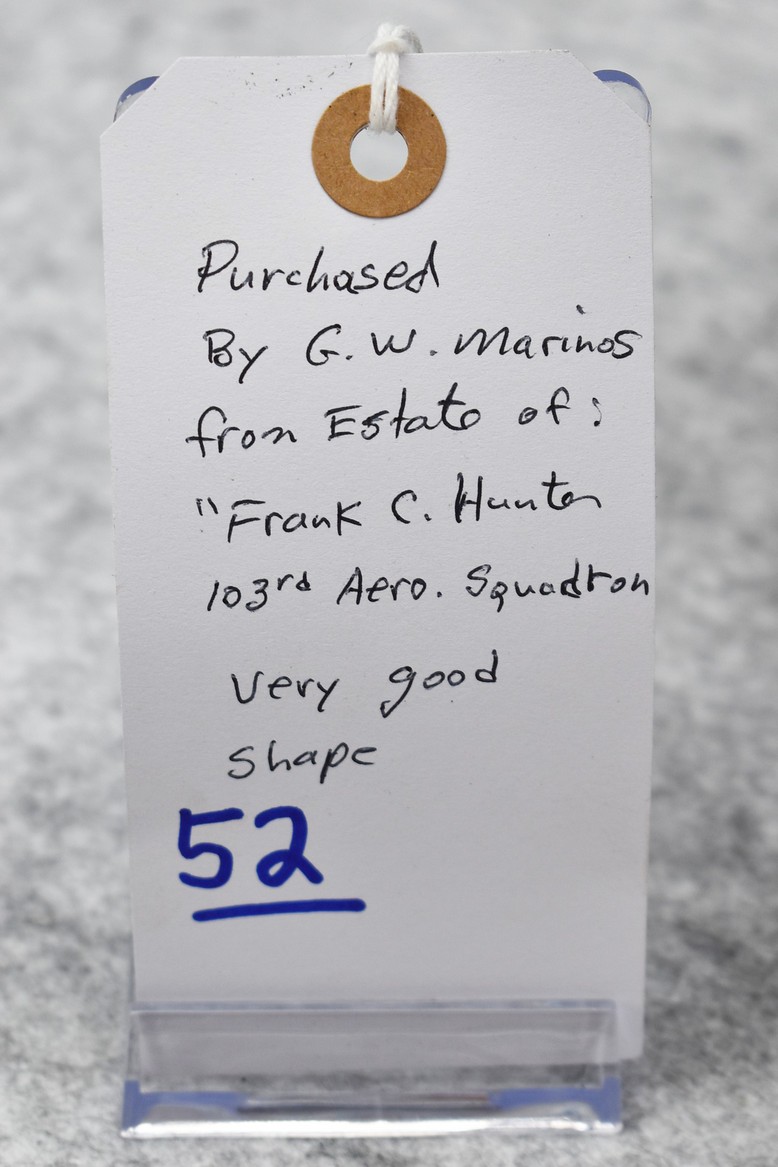 Purchased
By G. W. Marinos
from Estate of:
"Frank C. Hunter
103rd Aero. Squadron
Very good
shape
52